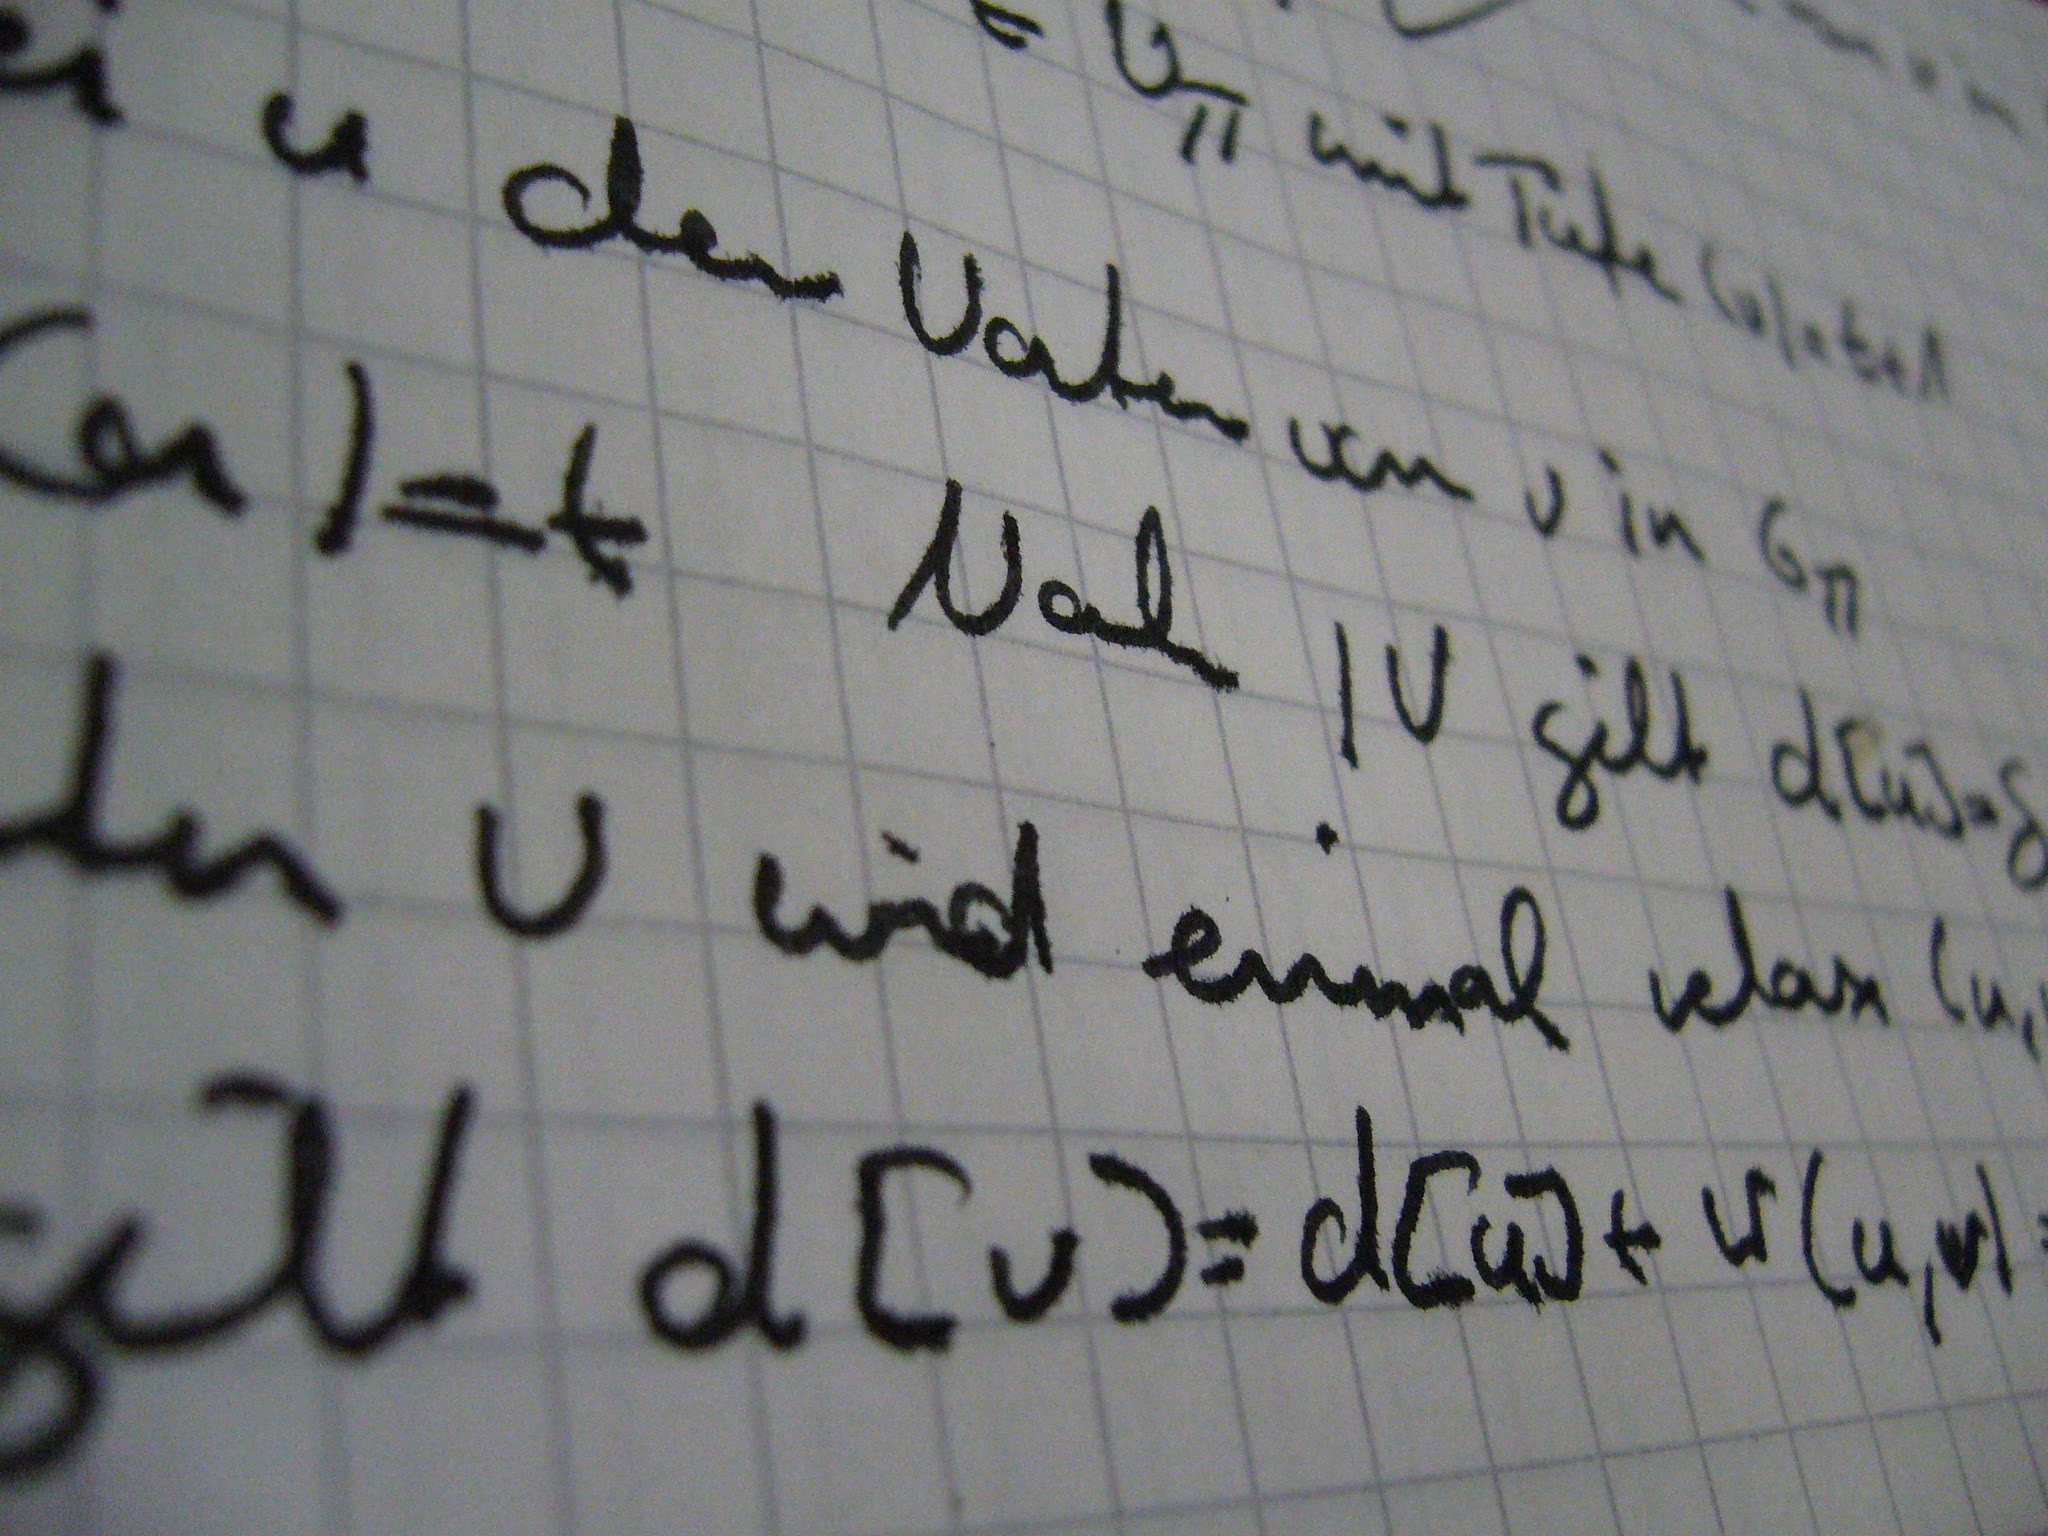 = V_π mit Tiefe (v)
ei u der Vater von v in G_π
(er) = t Nach IV gilt d[u] =
der v wird einmal relax (u,
gilt d[v] = d[u] + w(u,v) =